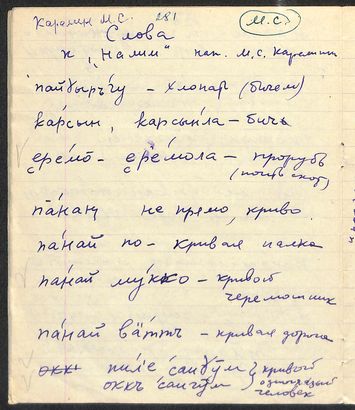 Каралин М.С. 281 М.С.
Слова
к „Налим“ нап. М.С. Каралин
пайɣыръ́гу – хлопать (бичем)
ка́рсын, карсы́нла – бичь
ере́мо̄ – ере́мола – прорубь
(поить скот)
па́наң не прямо, криво.
па́най по – кривая палка
па́най му́кко – кривой
черемошник
па́най вӓ́ттъ – кривая дорога
окк пиле саиɣум } кривый
оккъ саигум } одноглазый
человек